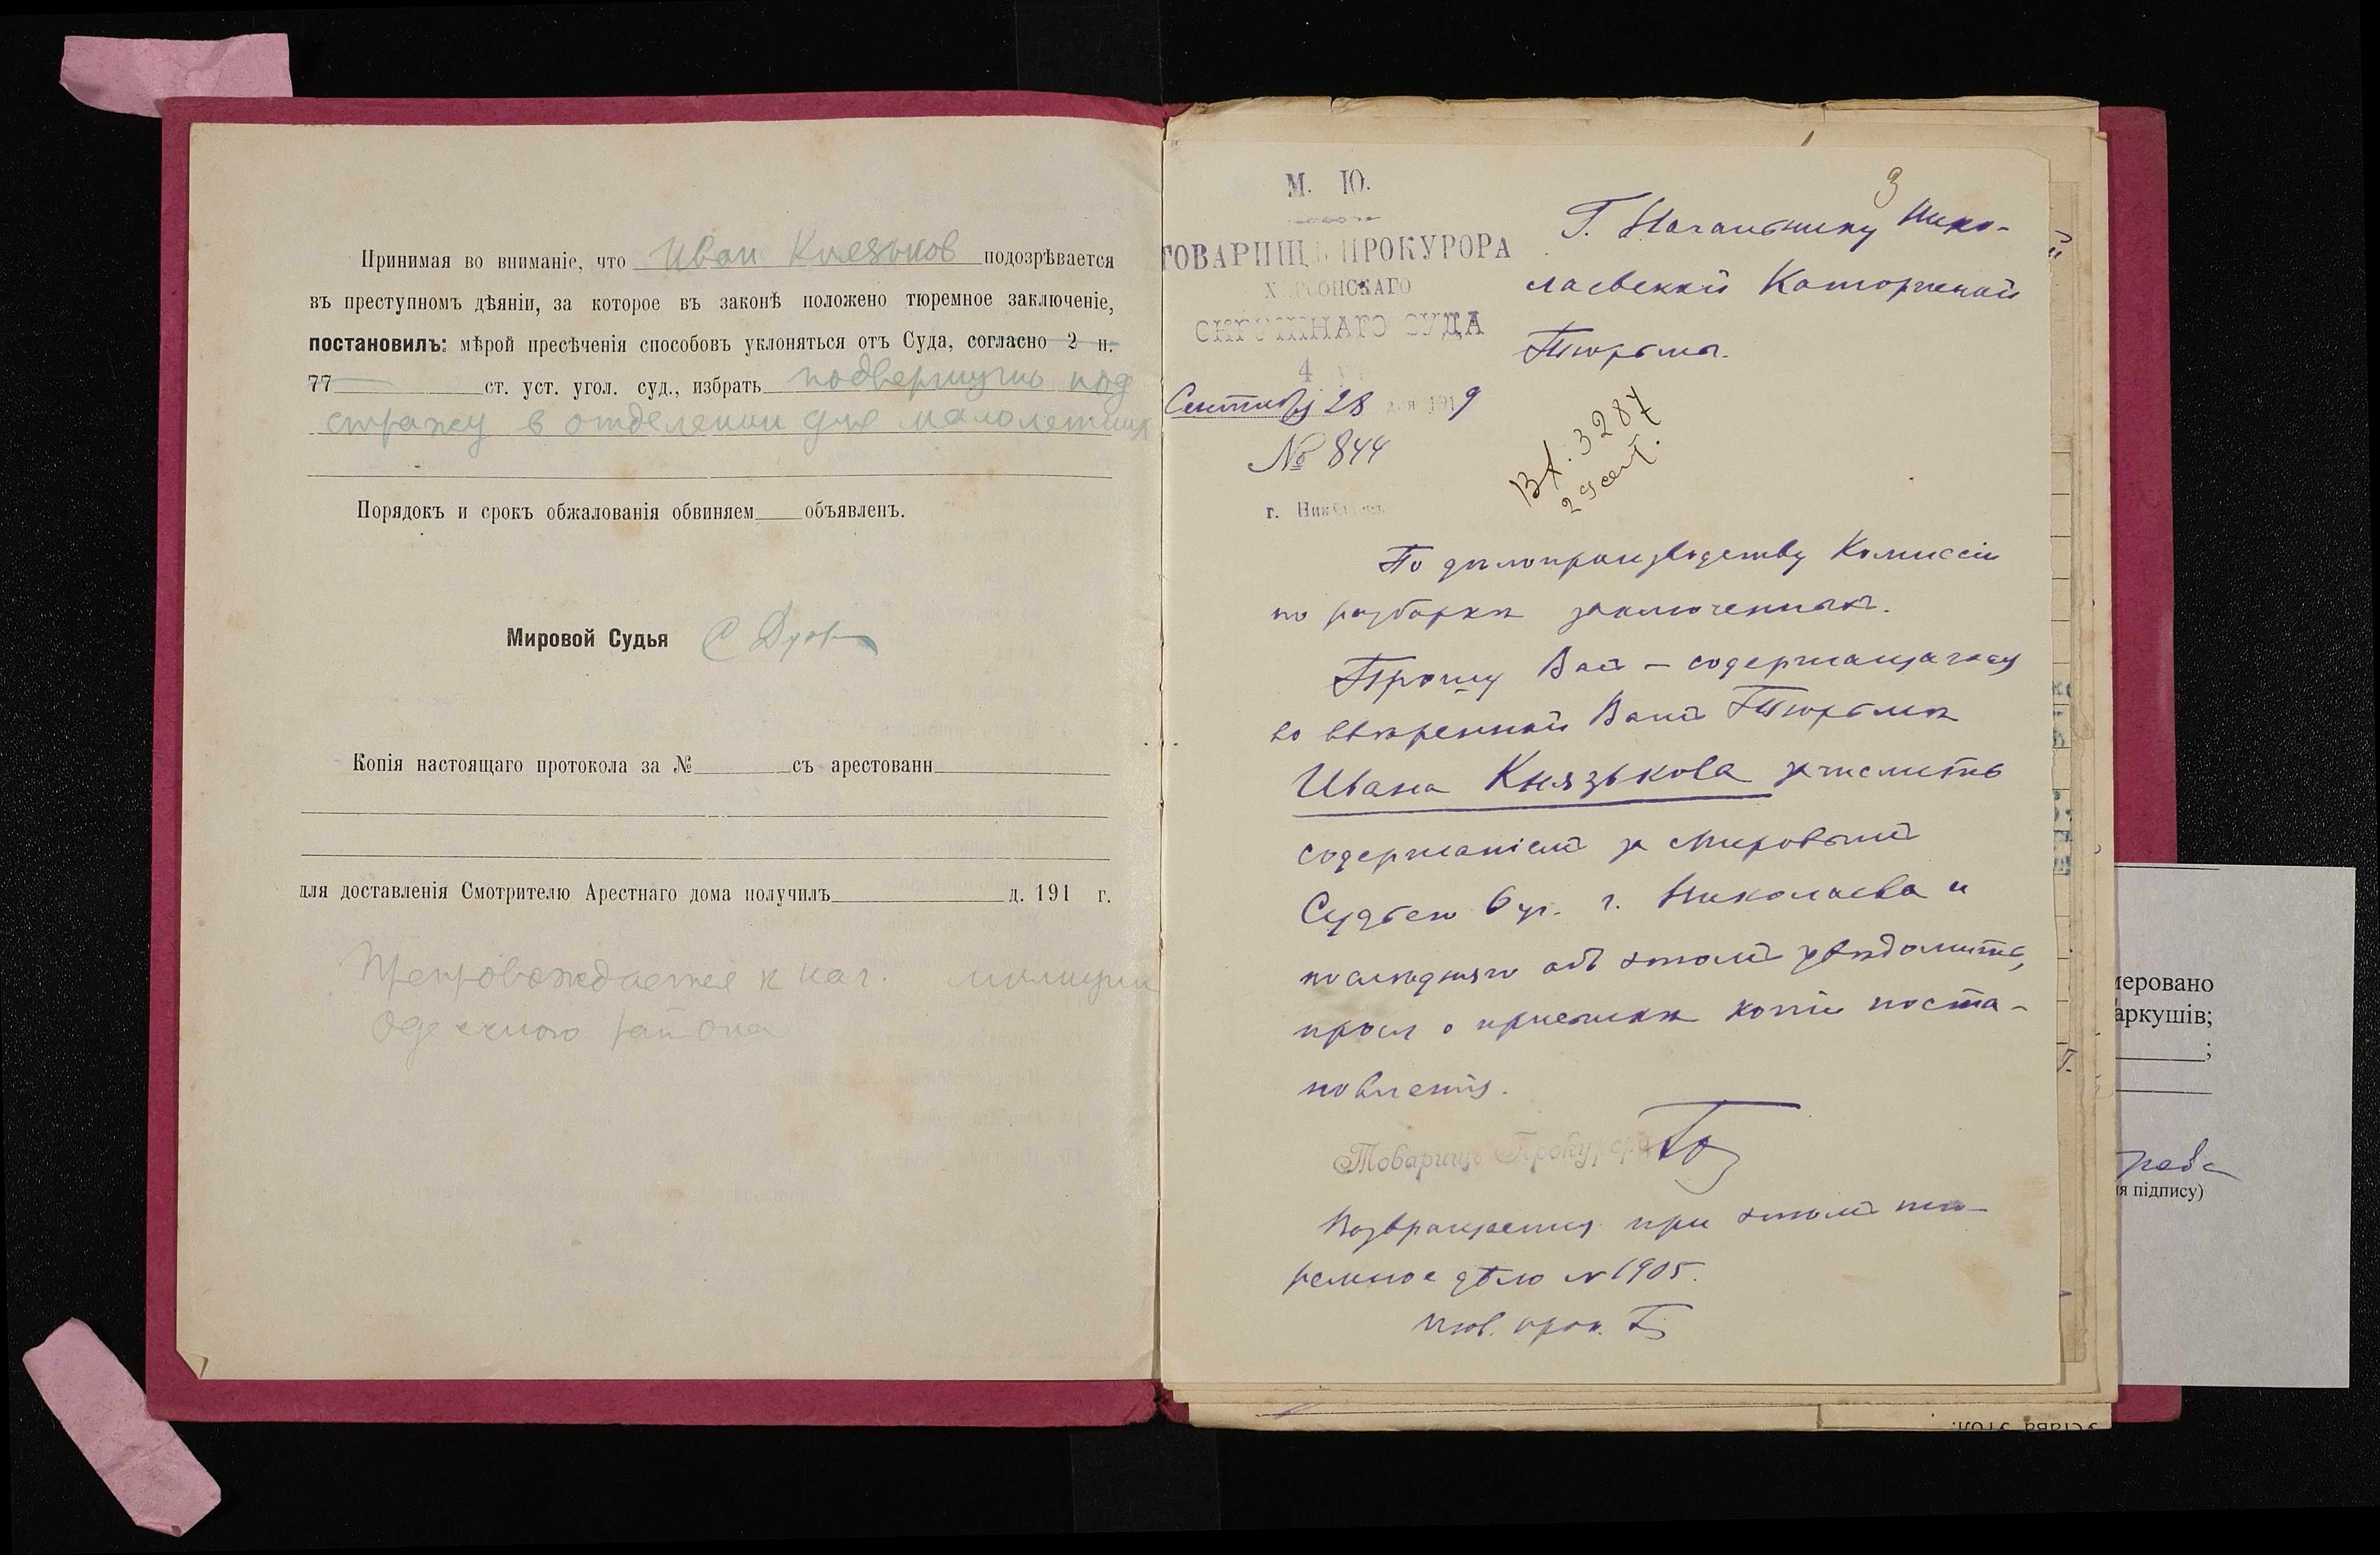 Принимая во вниманіе, что Иван Князьков подозрѣвается
въ преступномъ дѣяніи, за которое въ законѣ положено тюремное заключеніе,
постановилъ: мѣрой пресѣченія способовъ уклоняться отъ Суда, согласно 2 п.
77 ст. уст. угол. суд., избрать подвергнуть под
стражу в отделении для малолетних
Порядокъ и срокъ обжалованія обвиняем объявленъ.
Мировой Судья
Копія настоящаго протокола за № съ арестованн
для доставленія Смотрителю Арестнаго дома получилъ д. 191 г.
Препровождается к нач. милиции
района
3
М. Ю.
ТОВАРИЩЪ ПРОКУРОРА
ХЕРСОНСКАГО
ОКРУЖНАГО СУДА
4
Сентября 28 дня 1919
№ 844
г. Николаевъ
Г. Начальнику Нико-
лаевской Каторжной
Тюрьмы.
Вх. 3287
29 сент.
По дѣлопроизводству Комиссіи
по разборкѣ заключенныхъ.
Прошу Васъ – содержащагося
во ввѣренной Вамъ Тюрьмѣ
Ивана Князькова зачислить
содержаніемъ за Мировымъ
Судьею 6 уч. г. Николаева и
послѣдняго объ этомъ увѣдомить,
прося о присылкѣ копіи поста-
новленія.
Товарищъ Прокурора
Возвращается при этомъ тю-
ремное дѣло № 1905.
Тов. прок.
меровано
аркушів;
;
я підпису)
устава угол.